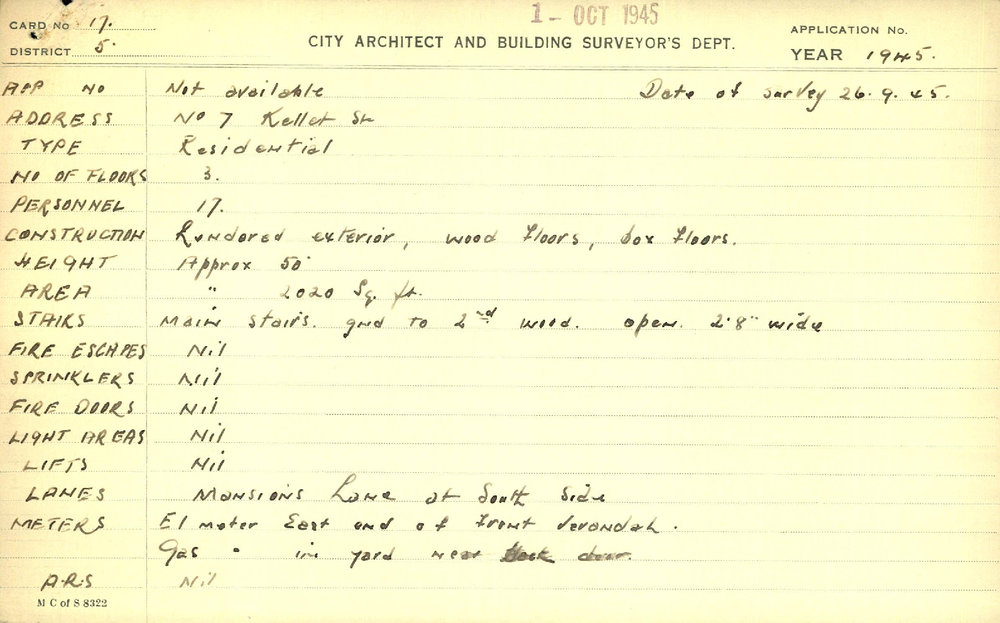 1 - OCT 1945
CARD No 17.
DISTRICT 5.
CITY ARCHITECT AND BUILDING SURVEYOR'S DEPT.
APPLICATION No.
YEAR 1945.
APP NO Not available Date of survey 26.9.45.
ADDRESS No 7 Kellet St
TYPE Residential
NO OF FLOORS 3.
PERSONNEL 17.
CONSTRUCTION Rendered exterior, wood floors, box floors.
HEIGHT Approx 50'
AREA " 2020 Sq. ft.
STAIRS Main stairs. gnd to 2nd wood. open. 2'8" wide
FIRE ESCAPES Nil
SPRINKLERS Nil
FIRE DOORS Nil
LIGHT AREAS Nil
LIFTS Nil
LANES Mansions Lane at South Side
METERS El meter East end of front verandah.
Gas " in yard near back door.
A.R.S Nil
M C of S 8322